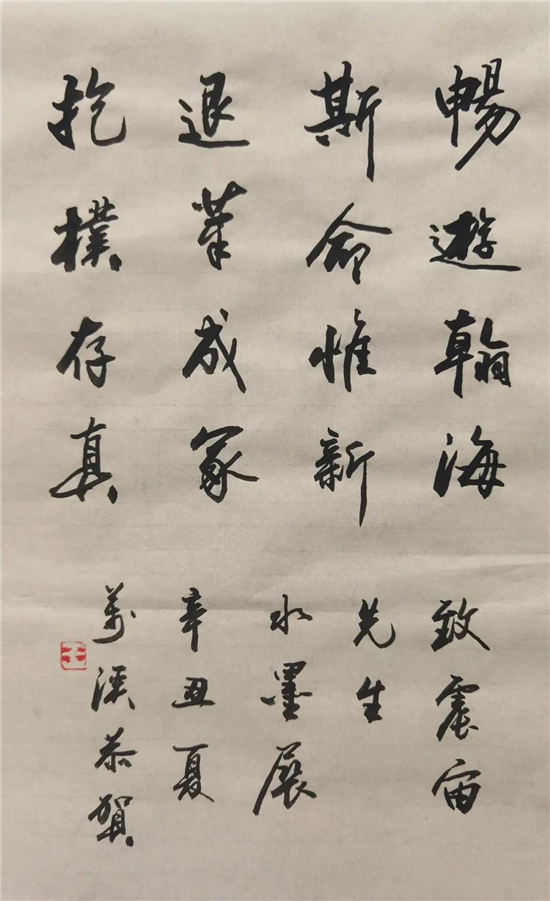 暢遊翰海
斯命惟新
退筆成冢
抱樸存真
致震宙
先生
水墨展
辛丑夏
萬溪恭賀
王